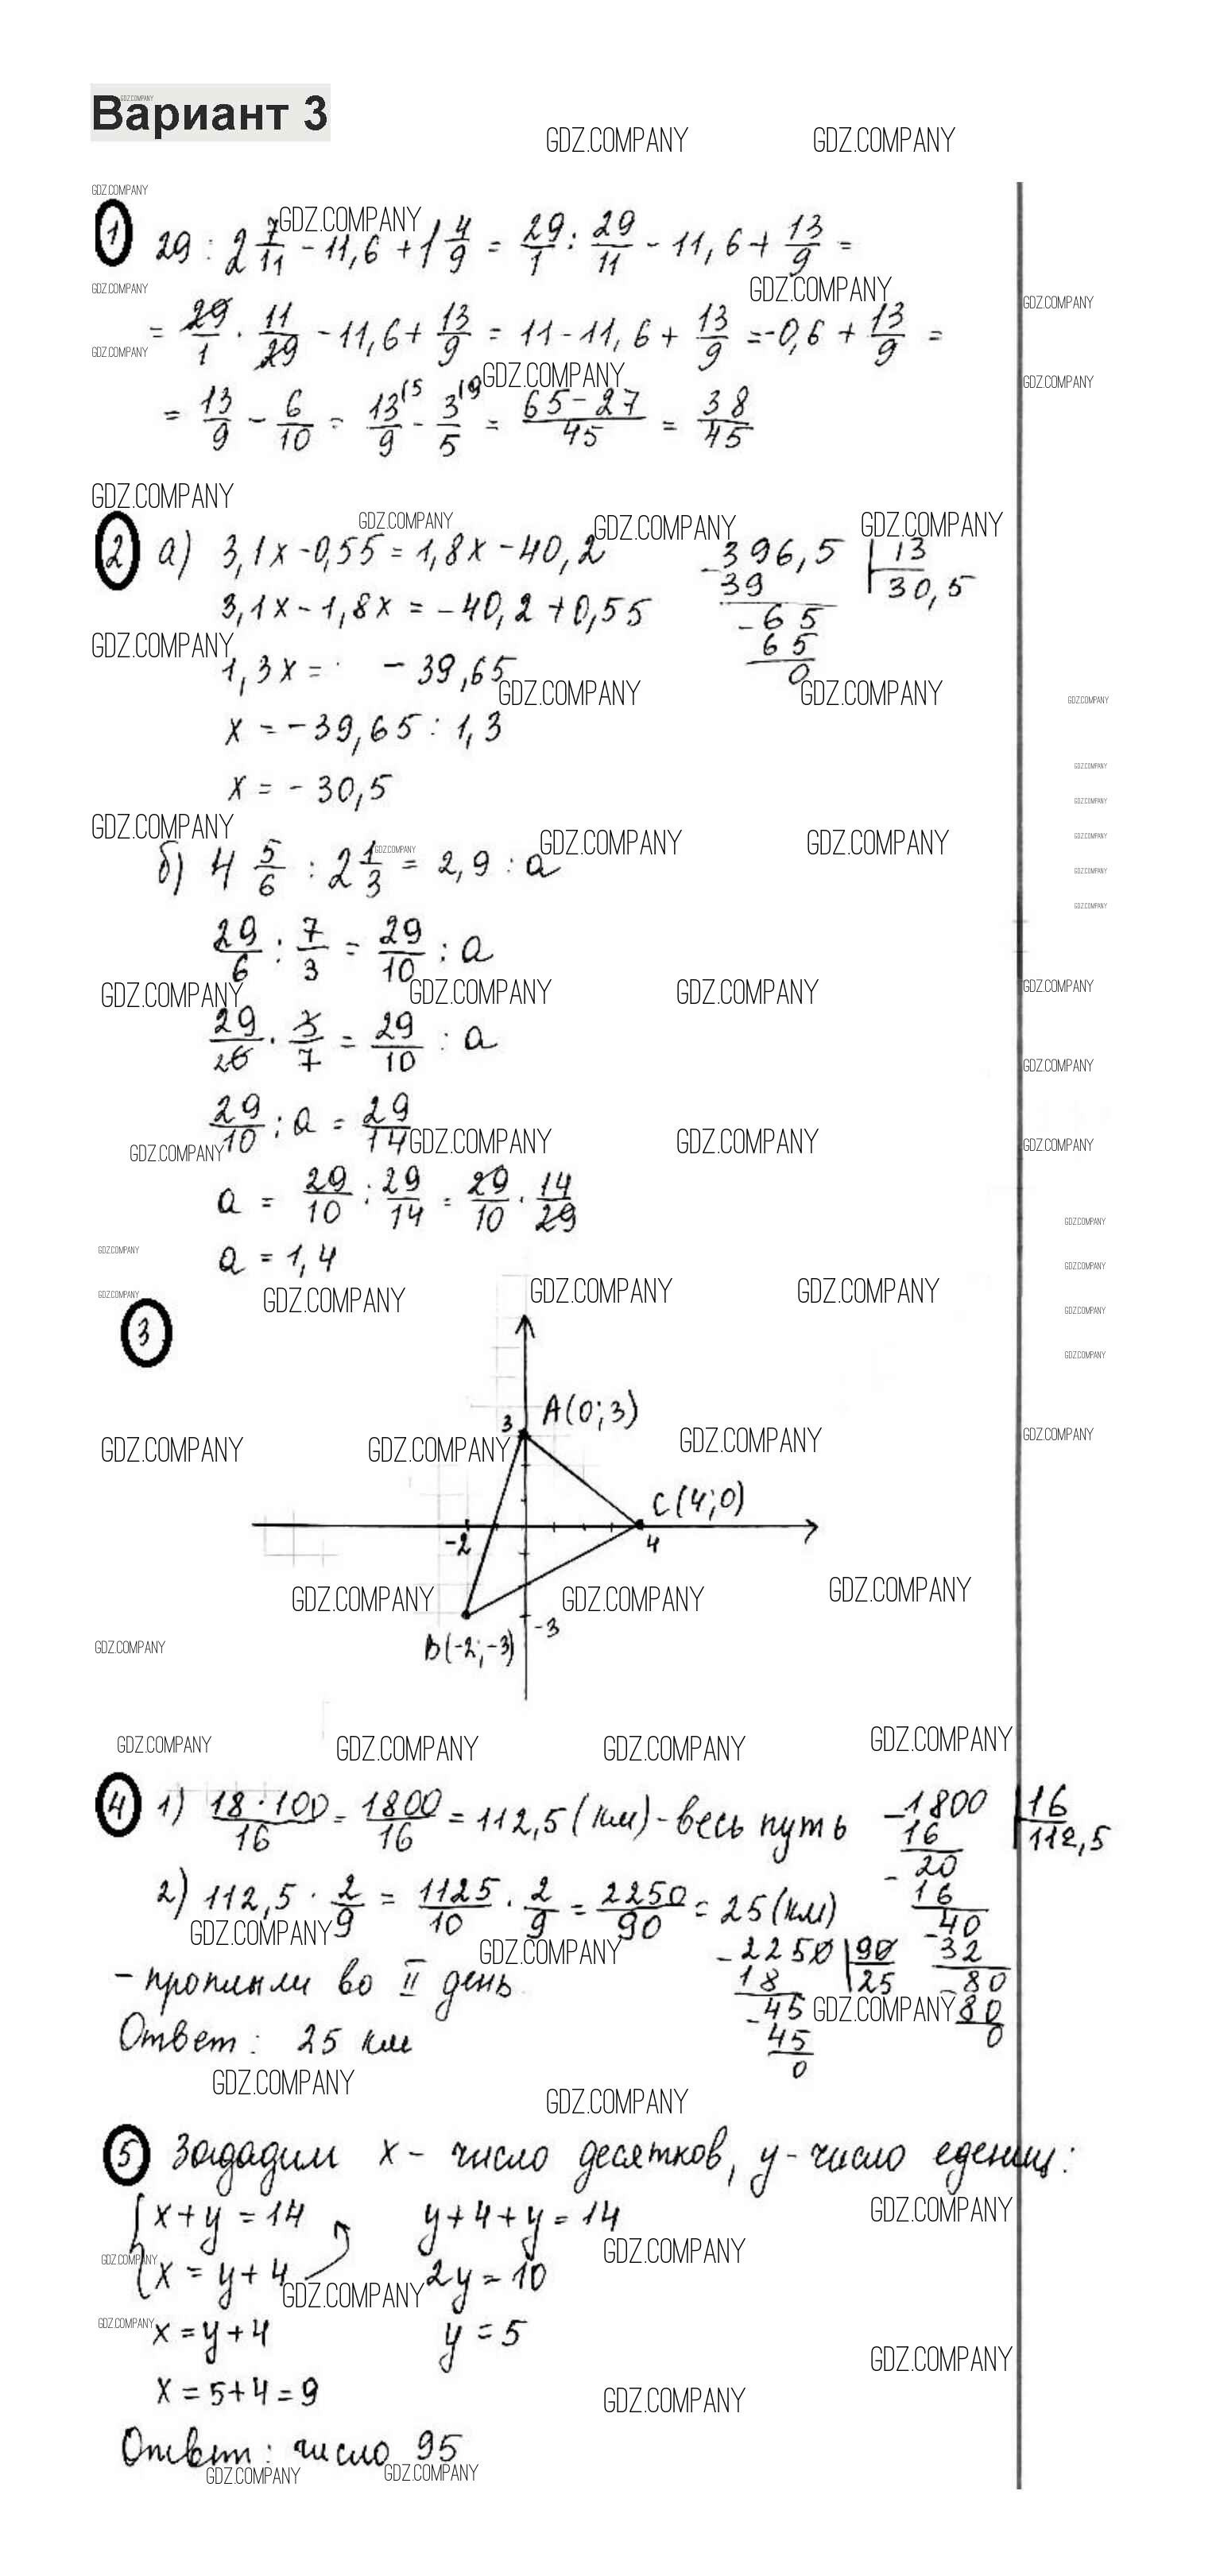 Вариант 3
1 29 : 2 7/11 - 11,6 + 1 4/9 = 29/1 : 29/11 - 11,6 + 13/9 =
= 29/1 · 11/29 - 11,6 + 13/9 = 11 - 11,6 + 13/9 = -0,6 + 13/9 =
= 13/9 - 6/10 = 13(5/9 - 3(9/5 = 65-27/45 = 38/45
2 а) 3,1x - 0,55 = 1,8x - 40,2
3,1x - 1,8x = -40,2 + 0,55
1,3x = - 39,65
x = -39,65 : 1,3
x = - 30,5
-396,5 13
39 30,5
-65
65
0
б) 4 5/6 : 2 1/3 = 2,9 : a
29/6 : 7/3 = 29/10 : a
29/26 · 3/7 = 29/10 : a
29/10 : a = 29/14
a = 29/10 : 29/14 = 29/10 · 14/29
a = 1,4
3
3 A(0;3)
C(4;0)
-2 4
-3
B(-2;-3)
4 1) 18·100/16 = 1800/16 = 112,5 (км) - весь путь
2) 112,5 · 2/9 = 1125/10 · 2/9 = 2250/90 = 25 (км)
- проплыли во II день
Ответ: 25 км
-1800 16
16 112,5
-20
16
-40
-32
-80
80
0
-2250 90
18 25
-45
45
0
5 Зададим x - число десятков, y - число едениц:
x + y = 14
x = y + 4
x = y + 4
x = 5+4 = 9
y + 4 + y = 14
2y = 10
y = 5
Ответ: число 95
GDZ.COMPANY